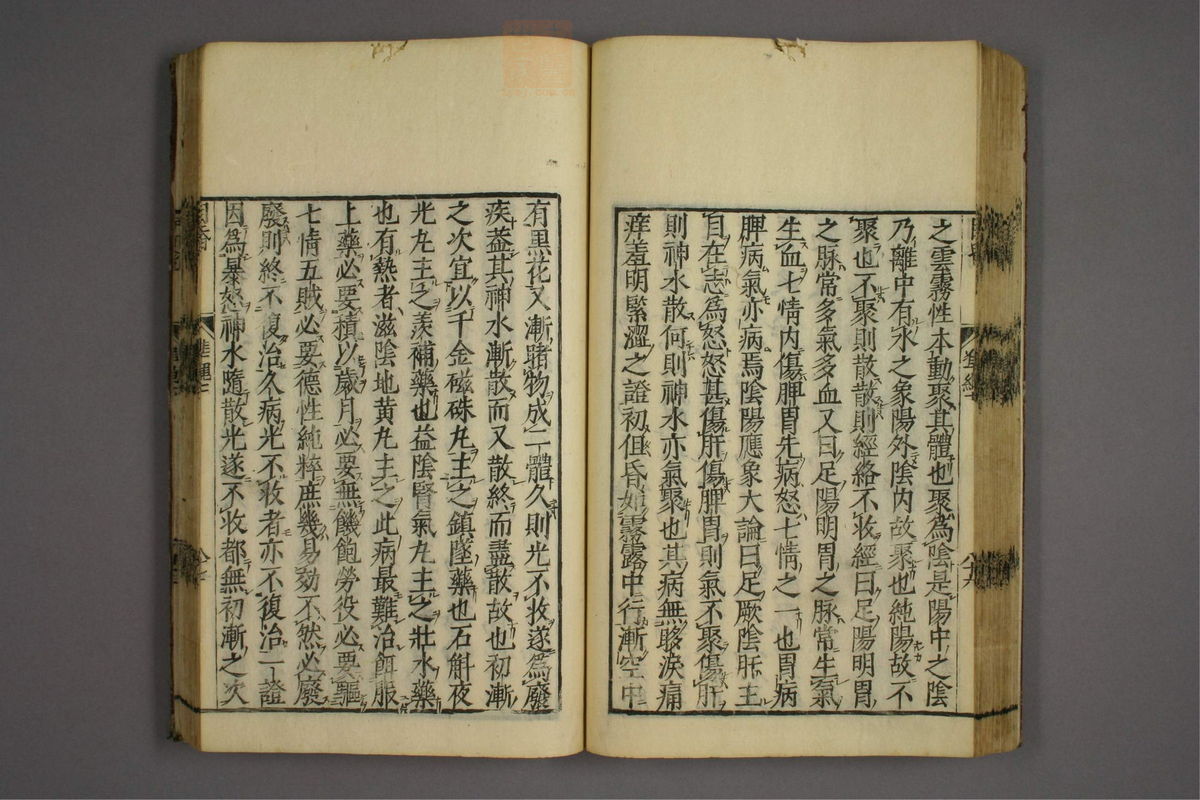 之雲霧性本動聚其體也聚爲陰是陽中之陰
乃離中有水之象陽外陰内故聚也純陽故不
聚也不聚則散散則經絡不收經曰足陽明胃
之脉常多氣多血又曰足陽明胃之脉常生氣
生血七情内傷脾胃先病怒七情之一也胃病
脾病氣亦病焉陰陽應象大論曰足厥陰肝主
目在志爲怒怒甚傷肝傷脾胃則氣不聚傷肝
則神水散何則神水亦氣聚也其病無眵淚痛
痒羞明緊澀之證初但昏如霧露中行漸空中
有黒花又漸睹物成二體久則光不收遂爲廢
疾葢其神水漸散而又散終而盡散故也初漸
之次宜以千金磁硃丸主之鎮墜藥也石斛夜
光丸主之羨補藥也益陰腎氣丸主之壯水藥
也有熱者滋陰地黄丸主之此病最難治餌服
上藥必要積以歲月必要無饑飽勞役必要驅
七情五賊必要德性純粹庶幾易効不然必廢
廢則終不復治久病光不收者亦不復治一證
因爲暴怒神水隨散光遂不收都無初漸之次